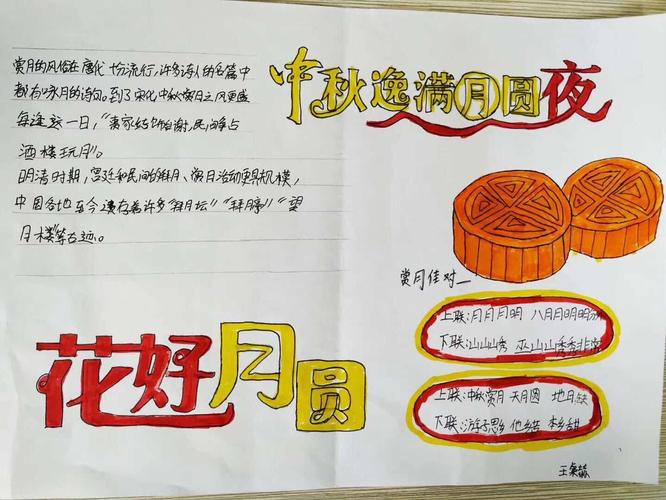 中秋逸满月圆夜
赏月的风俗在唐代十分流行,许多诗人的名篇中
都有咏月的诗句。到了宋代,中秋赏月之风更盛
每逢这一日,“贵家结饰台榭,民间争占
酒楼玩月”。
明清时期,宫廷和民间的拜月、赏月活动更具规模,
中国各地至今遗存着许多“拜月坛”“拜月亭”“望
月楼”等古迹。
赏月佳对
上联:月月月明 八月月明明分
下联:山山山秀 巫山山秀秀非常
上联:中秋赏月 天月圆 地月缺
下联:游子思乡 他乡苦 本乡甜
花好月圆